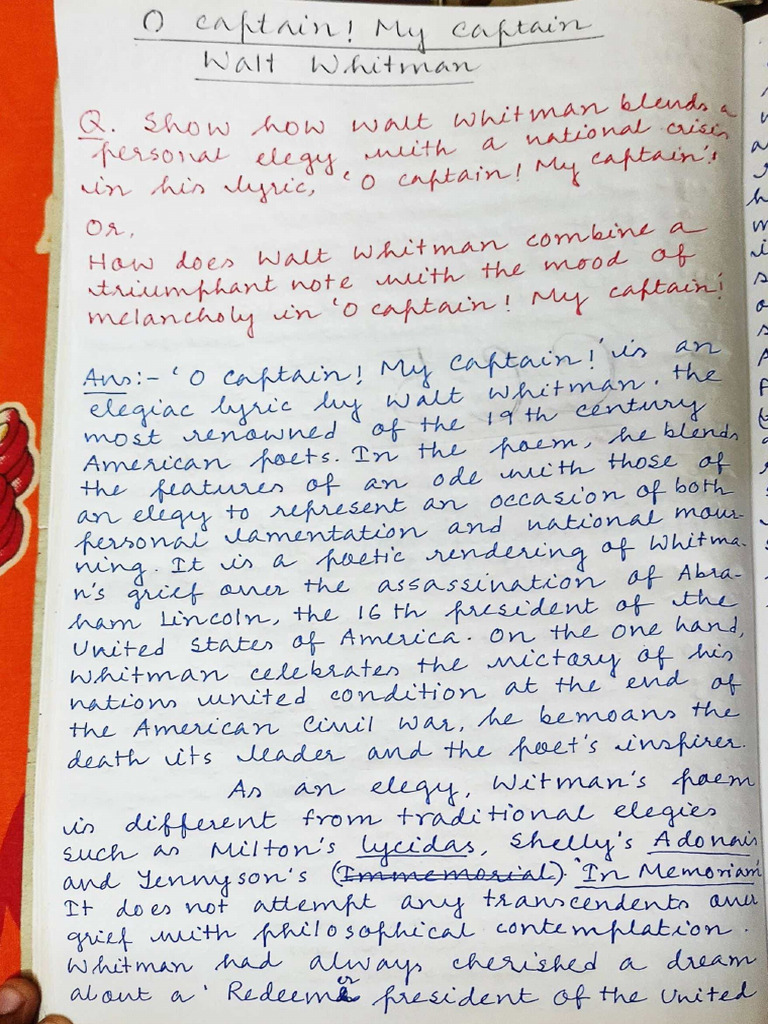 O captain! My captain
Walt Whitman
Q. Show how Walt Whitman blends a
personal elegy with a national crisis
in his lyric, 'O captain! My captain'!
Or,
How does Walt Whitman combine a
triumphant note with the mood of
melancholy in 'O captain! My captain!
Ans:- 'O captain! My captain!' is an
elegiac lyric by Walt Whitman. the
most renowned of the 19th century
American poets. In the poem, he blends
the features of an ode with those of
an elegy to represent an occasion of both
personal lamentation and national mour-
ning. It is a poetic rendering of Whitma-
n's grief over the assassination of Abra-
ham Lincoln, the 16th president of the
United States of America. On the one hand,
Whitman celebrates the victory of his
nations united condition at the end of
the American Civil War, he bemoans the
death its leader and the poet's inspirer.
As an elegy, Witman's poem
is different from traditional elegies
such as Milton's Lycidas, Shelly's Adonais
and Tennyson's (Immemorial) 'In Memoriam
It does not attempt any transcendents over
grief with philosophical contemplation.
Whitman had always cherished a dream
about a 'Redeemer president of the United